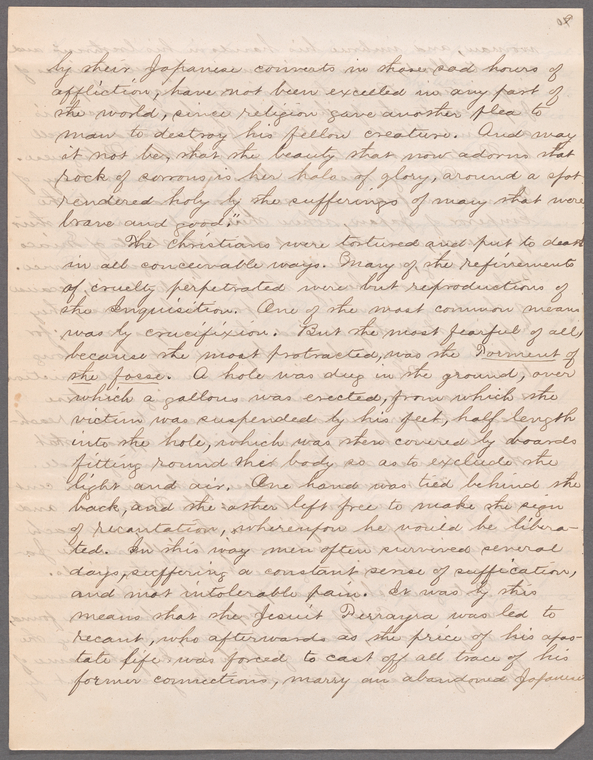 by their Japanese converts in those sad hours of
affliction, have not been excelled in any part of
the world, since religion gave another plea to
man to destroy his fellow creature. And may
it not be, that the beauty that now adorns that
rock of sorrows is her halo of glory, around a spot
rendered holy by the sufferings of many that were
brave and good."
The Christians were tortured and put to death
in all conceivable ways. Many of the refinements
of cruelty perpetrated were but reproductions of
the Inquisition. One of the most common means
was by crucifixion. But the most fearful of all,
because the most protracted, was the Torment of
the fosse. A hole was dug in the ground, over
which a gallows was erected, from which the
victim was suspended by his feet, half length
into the hole, which was then covered by boards
fitting round the body so as to exclude the
light and air. One hand was tied behind the
back, and the other left free to make the sign
of recantation, whereupon he would be libera-
ted. In this way men often survived several
days, suffering a constant sense of suffication,
and most intolerable pain. It was by this
means that the Jesuit Perrayra was led to
recant, who afterwards as the price of his apos-
tate life was forced to cast off all trace of his
former connections, marry an abandoned Japanese